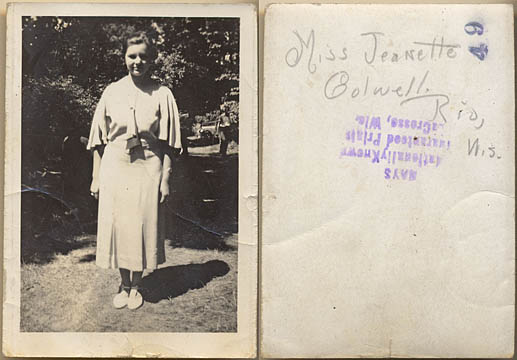 49
Miss Jeanette
Colwell.
Rio,
Wis.
MAYS
Nationally Known
Guaranteed Prints
LaCrosse, Wis.